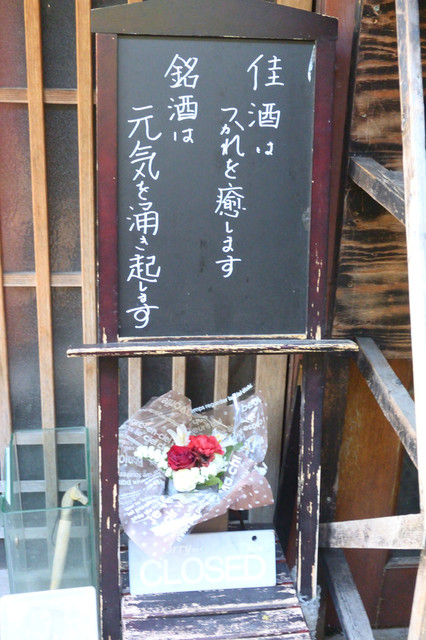 佳酒は
つかれを癒します
銘酒は
元気を涌き起します
CLOSED